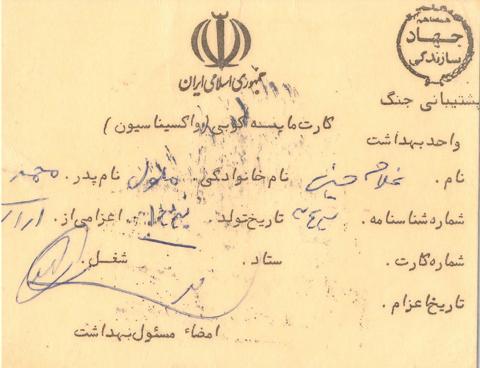 جمهوری اسلامی ایران
همه با هم
جهاد
سازندگی
پشتیبانی جنگ
کارت مایه کوبی (واکسیناسیون)
واحد بهداشت
نام. غلام حسین نام خانوادگی. ملول نام پدر. محمد
شماره شناسنامه. تاریخ تولد. اعزامی از. اراک
شماره کارت. ستاد. شغل.
تاریخ اعزام.
امضاء مسئول بهداشت